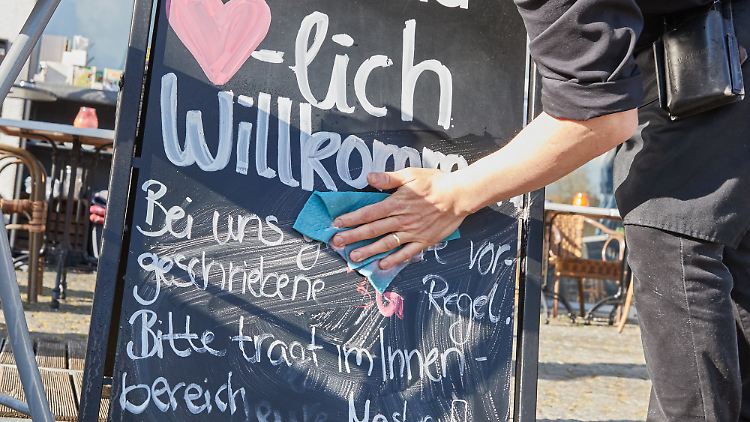 -lich
Willkomm
Bei uns g vor-
geschriebene Regel.
Bitte tragt im Innen-
bereich